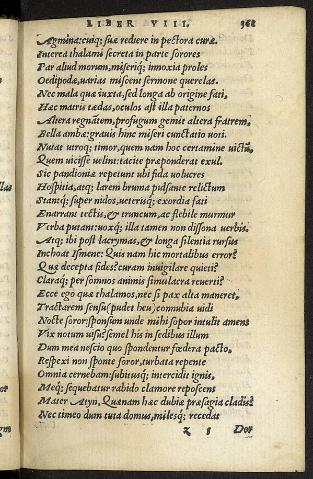 LIBER VIII. 368
Agmina: cuiq; suæ rediere in pectora curæ.
Interea thalami secreta in parte sorores
Par aliud morum, miseriq; innoxia proles
Oedipodæ, uarias miscent sermone querelas.
Nec mala quæ iuxta, sed longa ab origine fati,
Hæc matris tædas, oculos ast illa paternos
Altera regnātem, profugum gemit altera fratrem,
Bella ambæ: grauis hinc miseri cunctatio uoti.
Nutat utroq; timor, quem nam hoc certamine uictū,
Quem uicisse uelint: tacite præponderat exul.
Sic pandioniæ repetunt ubi fida uolucres
Hospitia, atq; larem bruma pulsante relictum
Stantq; super nidos, ueterisq; exordia fati
Enarrant tectis, & truncum, ac flebile murmur
Verba putant: uoxq; illa tamen non dissona uerbis.
Atq; ibi post lacrymas, & longa silentia rursus
Inchoat Ismene: Quis nam hic mortalibus error?
Quæ decepta fides? curam inuigilare quieti?
Claraq; per somnos animis simulacra reuerti?
Ecce ego quæ thalamos, nec si pax alta maneret,
Tractarem sensu (pudet heu) connubia uidi
Nocte soror: sponsum unde mihi sopor intulit amens
Vix notum uisu? semel his in sedibus illum
Dum mea nescio quo spondentur fœdera pacto,
Respexi non sponte soror, turbata repente
Omnia cernebam: subitusq; intercidit ignis,
Meq; sequebatur rabido clamore reposcens
Mater Atyn, Quænam hæc dubiæ præsagia cladis?
Nec timeo dum tuta domus, milesq; recedat
z 5 Dor